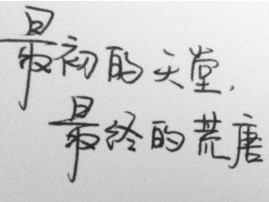 最初的天堂，
最终的荒唐